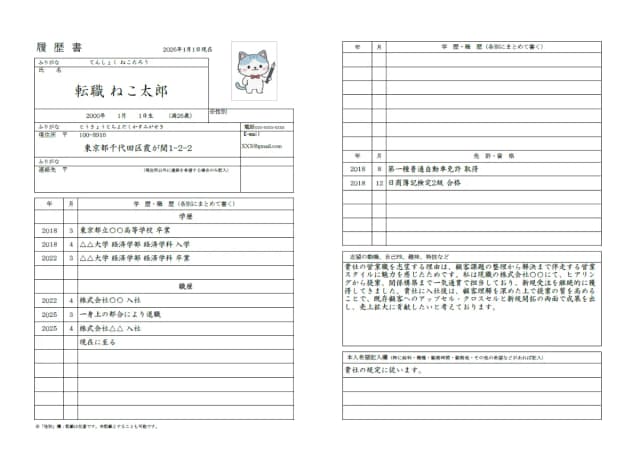 履 歴 書
2026年1月1日現在
ふりがな てんしょく ねこたろう
氏 名
転職 ねこ太郎
2000年 1月 1日生 (満26歳)
※性別
ふりがな とうきょうとちよだくかすみがせき
電話xxx-xxxx-xxxx
現住所 〒 100-8916
E-mail
東京都千代田区霞が関1-2-2
XXX@gmail.com
ふりがな
連絡先 〒 (現住所以外に連絡を希望する場合のみ記入)
年 月 学 歴・職 歴 (各別にまとめて書く)
学歴
2018 3 東京都立〇〇高等学校 卒業
2018 4 △△大学 経済学部 経済学科 入学
2022 3 △△大学 経済学部 経済学科 卒業
職歴
2022 4 株式会社〇〇 入社
2025 3 一身上の都合により退職
2025 4 株式会社△△ 入社
現在に至る
※「性別」欄:記載は任意です。未記載とすることも可能です。
年 月 学 歴・職 歴 (各別にまとめて書く)
年 月 免 許・資 格
2018 8 第一種普通自動車免許 取得
2018 12 日商簿記検定2級 合格
志望の動機、自己PR、趣味、特技など
貴社の営業職を志望する理由は、顧客課題の整理から解決まで伴走する営業
スタイルに魅力を感じたためです。私は現職の株式会社〇〇にて、ヒアリン
グから提案、関係構築まで一気通貫で担当しており、新規受注を継続的に獲
得してきました。貴社に入社後は、顧客理解を深めた上で提案の質を高める
ことで、既存顧客へのアップセル・クロスセルと新規開拓の両面で成果を出
し、売上拡大に貢献したいと考えております。
本人希望記入欄 (特に給料・職種・勤務時間・勤務地・その他の希望などがあれば記入)
貴社の規定に従います。